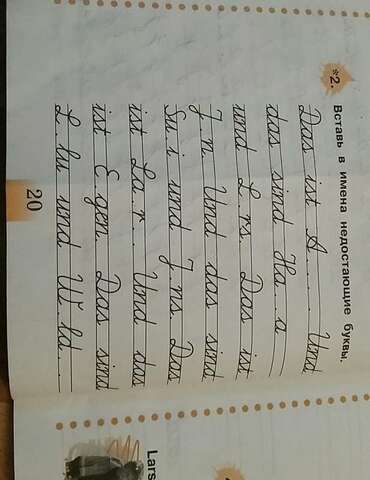 *2. Вставь в имена недостающие буквы.
Das ist A.... Und
das sind Ha..a
und L.rs. Das ist
J.n. Und das sind
Su.i und J.ns. Das
ist La.r.. Und das
ist E.gen. Das sind
L.lu und W.ld...
20
Lars